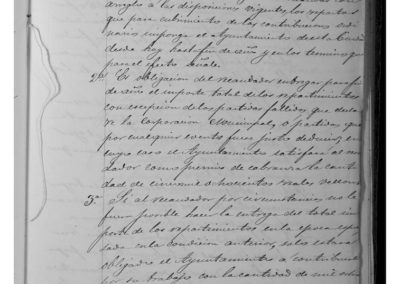 arreglo á las disposiciones vigentes, los repartos
que para cubrimiento de las contribuciones ordi
narias imponga el Ayuntamiento desta Ciudad
desde hoy hasta fin de año y en los terminos que
para el efecto señale.
2ª Es obligacion del recaudador entregar para fin
de año el importe total de los repartimientos
con excepcion de las partidas fallidas que decla
re la corporacion Municipal, o partidas que
por cualquier evento fuere justo deducir, en
cuyo caso el Ayuntamiento satisfará al recau
dador como premio de cobranza la canti
dad de mil ochocientos reales vellon
3ª Si al recaudador por circunstancias no le
fuere posible hacer la entrega del total im
porte de los repartimientos en la epoca espre
sada en la condicion anterior, solo estará
obligado el Ayuntamiento a contribuirle
por su trabajo con la cantidad de mil